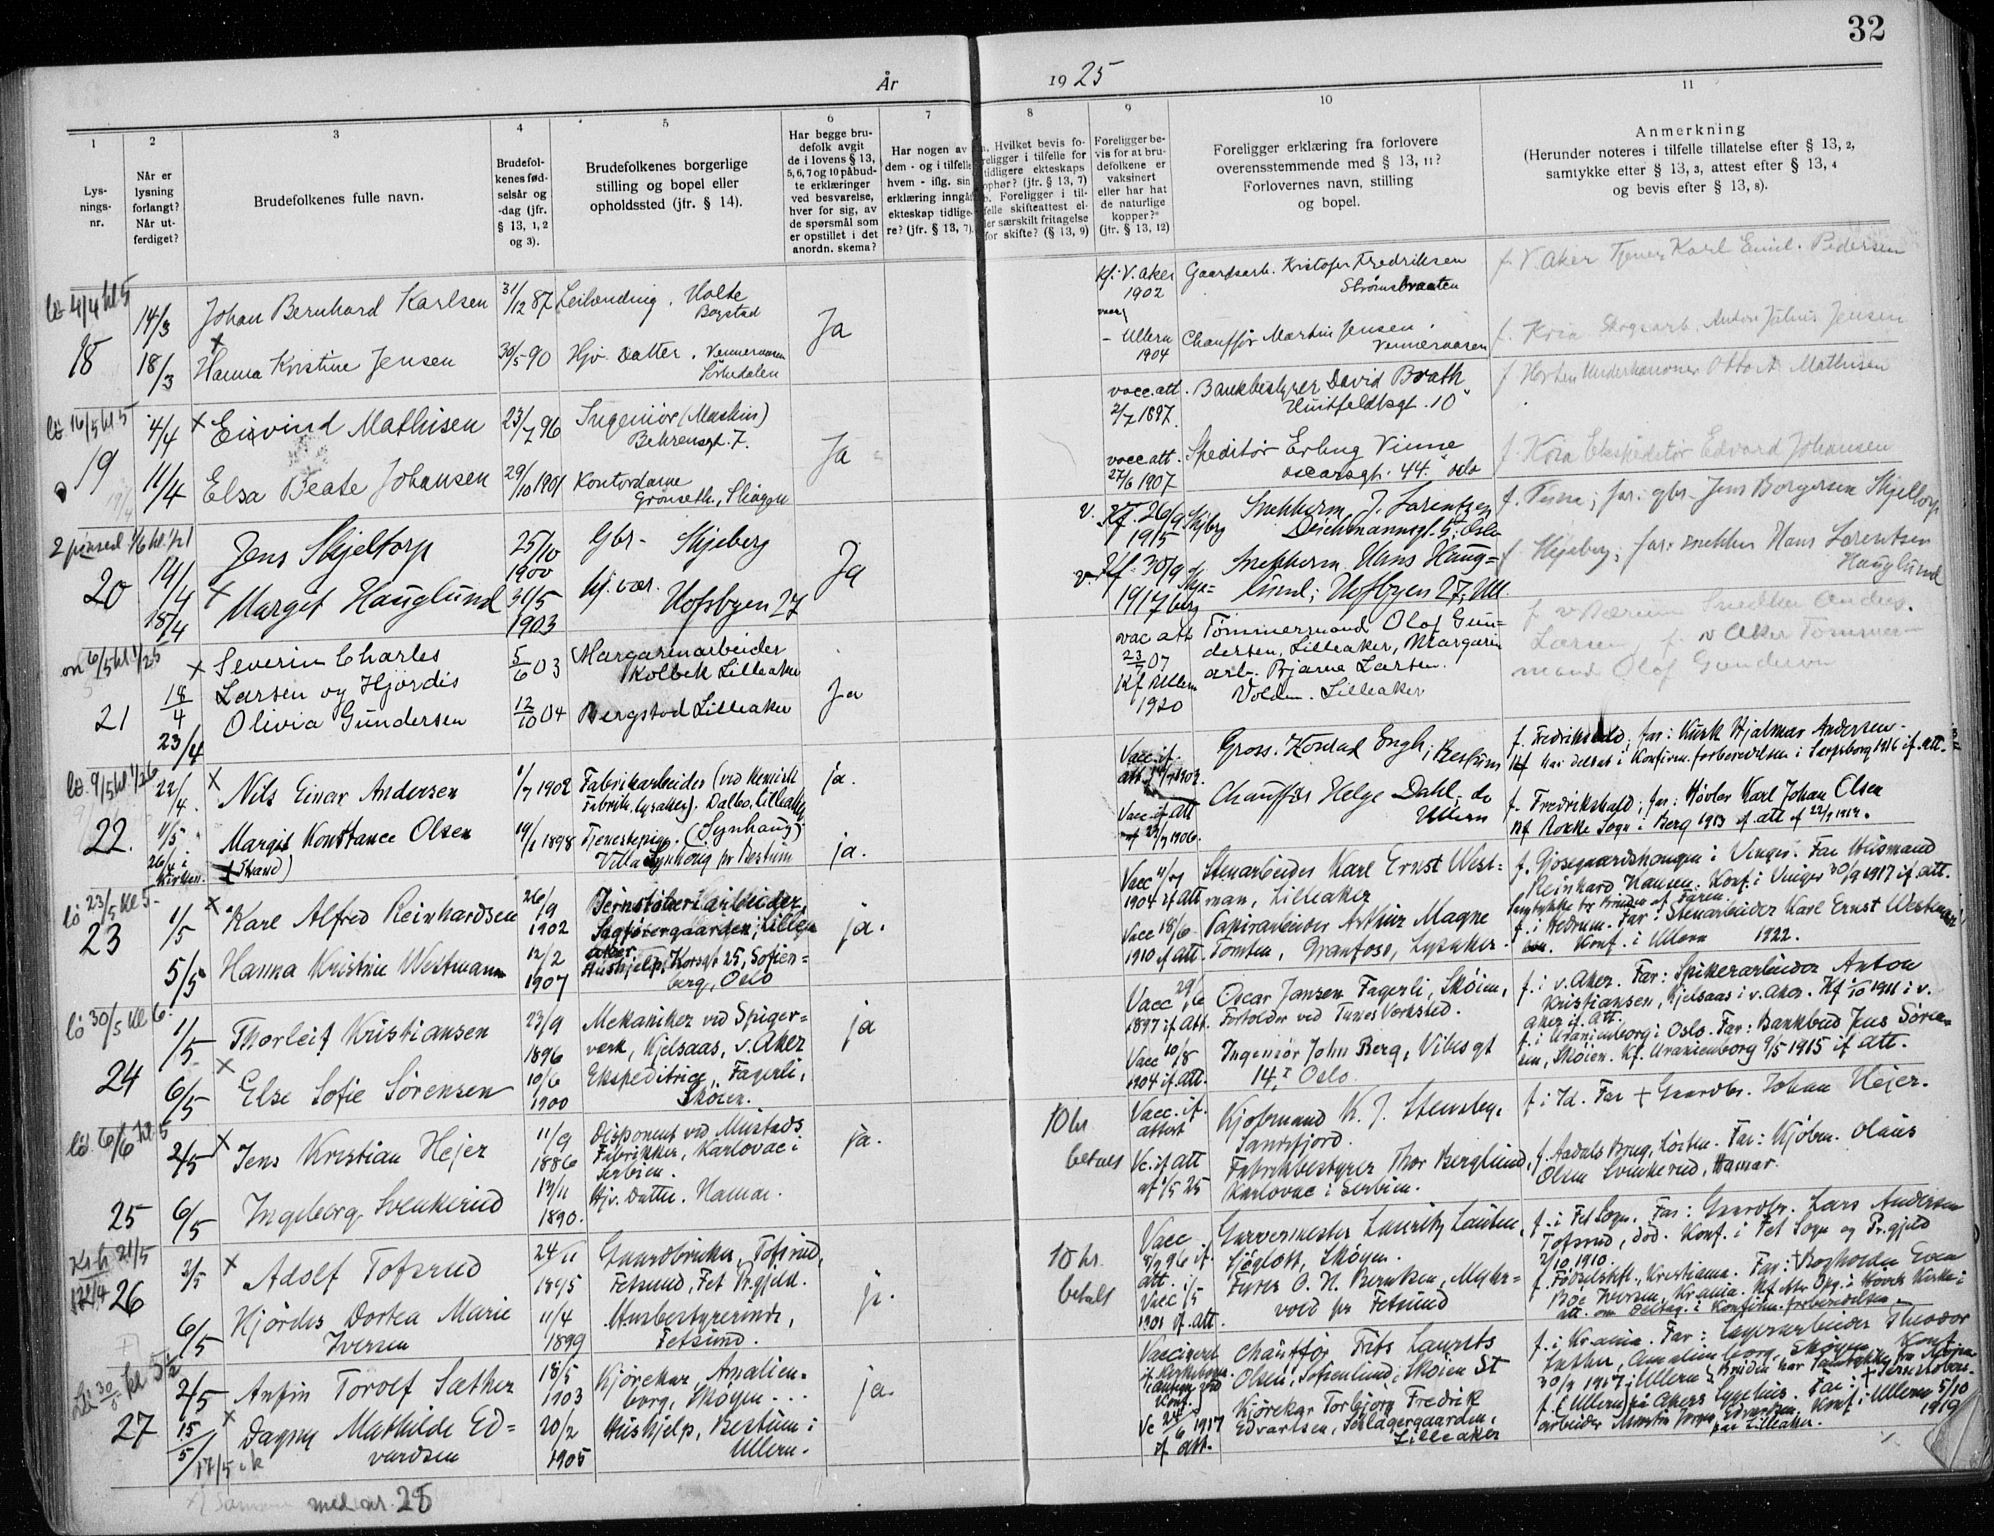 32
År 1925
1 2 3 4 5 6 7 8 9 10 11
Lys-
nings-
nr.
Når er
lysning
forlangt?
Når ut-
ferdiget?
Brudefolkenes fulle navn.
Brudefol-
kenes fød-
selsår og
-dag (jfr.
§ 13, 1, 2
og 3).
Brudefolkenes borgerlige
stilling og bopel eller
opholdssted (jfr. § 14).
Har begge bru-
defolk avgit
de i lovens § 13,
5, 6, 7 og 10 påbud-
te erklæringer
ved besvarelse,
hver for sig, av
de spørsmål som
er opstillet i det
anordn. skema?
Har nogen av
dem - og i tilfelle
hvem - iflg. sin
erklæring inngåt
ekteskap tidlige-
re? (jfr. § 13, 7).
a. Hvilket bevis fo-
religger i tilfelle for
tidligere ekteskaps
ophør? (jfr. § 13, 7)
b. Foreligger i til-
felle skifteattest el-
ler særskilt fritagelse
for skifte? (§ 13, 9)
Foreligger be-
vis for at bru-
defolkene er
vaksinert
eller har hat
de naturlige
kopper?
(jfr. § 13, 12)
Foreligger erklæring fra forlovere
overensstemmende med § 13, 11?
Forlovernes navn, stilling
og bopel.
Anmerkning
(Herunder noteres i tilfelle tillatelse efter § 13, 2,
samtykke efter § 13, 3, attest efter § 13, 4
og bevis efter § 13, 8).
lø 4/4 kl 5
18
14/3
18/3
Johan Bernhard Karlsen
31/12 87
Leilending. Holte
Bogstad
Ja
Kf: V. Aker
1902
Gaardsarb. Kristofer Fredriksen
Strømsbraaten
f. V. Aker Tjener Karl Emil Pedersen
Hanna Kristine Jensen
30/5 90
Hjv. datter. Vennervasen
Sørkedalen
- Ullern
1904
Chauffør Martin Jensen.
Vennervasen
f. Skogsarb. Anton Julius Jensen
lø 16/5 kl 5
19
4/4
11/4
x Eivind Mathisen
23/7 96
Ingeniør (Maskin)
Behrensgt. 7.
Ja
vacc. att.
2/7 1897.
Bankbestyrer David Brath
Huitfeldtsgt. 10
f. Horten Underkanoner Otto A. Mathisen
Elsa Beate Johansen
29/10 1901
Kontordame
Grønseth, Slingen
vacc. att.
27/6 1907
Speditør Erling Vinne
Oscarsgt. 44. Oslo
f. Kria Ekspeditør Edvard Johansen
2 pinsed 1/6 kl. 1/2 1
20
14/4
18/4
Jens Skjeltorp
25/10
1900
Gbr. Skjeberg
Ja
v. Kf. 26/9
1915 Skjbg
Snekkerm. J. Lorentzen
Deichmannsgt. 5, Oslo
f. Tune; far: gbr. Jens Borgersen Skjeltorp
x Margit Hauglund
31/5
1903
hj. vær. Hofsbyen 27
v. Kf. 30/9
1917 Skjeberg
Snekkerm. Hans Haug-
lund; Hofsbyen 27, Ull
f. Skjeberg; far: snekker Hans Lorentsen
Hauglund
on 6/5 kl 1/2 5
21
18/4
23/4
x Severin Charles
Larsen og Hjørdis
Olivia Gundersen
5/6 03
12/10 04
Margarinarbeider
Kolbek Lilleaker
Bergstad Lilleaker
Ja
vac att
23/7 07
Kf Ullern
1920
Tømmermand Olaf Gun-
dersen, Lilleaker, Margarin
arb. Bjarne Larsen.
Volden. Lilleaker
f. v Bærum Snekker Anders
Larsen, f. v Aker Tømmer-
mand Olaf Gundersen
lø. 9/5 kl 1/2 6
22.
22/4.
1/5.
x Nils Einar Andersen
1/7 1902
Fabrikarbeider (ved kemisk
Fabrik, Lysaker). Dalbo, Lilleaker
ja.
Vacc. if.
att.
Gross. Konrad Engh, Bestum
f. Fredrikshald; far: Kusk Hjalmar Andersen.
Har deltat i Konfirm.forberedelsen i Sarpsborg 1916 if. att.
Margit Konstance Olsen
(Strand)
19/1 1898
Tjenestepige. (Synhaug)
Villa Synhøug pr Bestum
ja.
Vacc. if att
af 23/9 1906.
Chauffør Helge Dahl, do
Ullern
f. Fredrikshald; far: Høvler Karl Johan Olsen
Kf Rokke Sogn i Berg 1913 if. att
lø 23/5 kl 5-
23
1/5
5/5
x Karl Alfred Reinhardsen
26/9
1902
Jernstøberiarbeider,
Sagførergaarden, Lille-
aker
ja.
Vacc
1904 if att
Stenarbeider Karl Ernst West-
man, Lilleaker
f. Gjøsegaardshaugen i Vinger. Far Husmand
Reinhard Hansen. Konf. i Vinger 30/9 1917 if. att.
Samtykke for Bruden af Faren.
Hanna Kristine Westmann
12/2
1907
Hushjelp, Korsgt 25, Sofien-
berg, Oslo
Vacc 18/6
1910 if att.
Papirarbeider Arthur Magne
Tomten, Granfoss, Lysaker.
f. i Hedrum. Far: Stenarbeider Karl Ernst Westmann
Konf. i Ullern 1922.
lø 30/5 kl 6.
24
1/5
6/5
Thorleif Kristiansen
23/9
1896
Mekaniker ved Spiger-
verk, Kjelsaas, v. Aker
ja
Vacc 29/6
1897 if. att.
Oscar Jansen Fagerli, Skøien,
Forholder ved Tunes Værksted.
f. i v. Aker. Far: Spikerarbeider Anton
Kristiansen, Kjelsaas i v. Aker. Kf 1/10 1911 i v.
Aker if. att.
x Else Sofie Sørensen
10/6
1900
Ekspeditrice, Fagerli,
Skøien.
Vacc 10/8
1904 if. att.
Ingeniør John Berg, Vibesgt
14, I Oslo.
f. i Uranienborg i Oslo. Far: Bankbud Jens Søren-
sen, Skøien. Kf. Uranienborg 9/5 1915 if att.
lø 6/6 kl 5
25
2/5
6/5
x Jens Kristian Hejer
11/9
1886
Disponent ved Mustads
Fabrikker, Karlovac i
Serbien.
ja.
10 kr.
betalt
Vacc. if.
attest
Kjøbmand K. J. Stensby,
Sandefjord.
f. i Id. Far + Gaardbr. Johan Hejer.
Ingeborg Svenkerud
13/11
1890.
Hjv. Datter. Hamar.
Vc. if att
af 1/5 25
Fabrikbestyrer Thor Berglund,
Karlovac i Serbien.
f. Aadals Brug, Løiten. Far: Kjøbm. Olaus
Olsen Svenkerud, Hamar.
21/5
26
2/5
6/5
x Adolf Tofsrud
24/11
1895
Gaardbruker, Tofsrud,
Fetsund, Fet Pr.gjeld.
ja.
10 kr.
betalt
Vacc
8/9 96 if.
att.
Garvermester Lauritz Lauten,
Sjøglott, Skøyen.
f. i Fet Sogn. Far: Gaardbr. Lars Andersen
Tofsrud, død. Konf. i Fet Sogn og Pr.gjeld
2/10 1910.
Hjørdis Dortea Marie
Iversen
11/4
1899
Husbestyrerinde,
Fetsund.
Vacc 1/5
1901 if. att.
Fyrer O. N. Berntsen, Myhr-
vold pr Fetsund
f. Fødselsstift., Kristiania. Far: + Bogholder Even
Boe Iversen, Krania.
att. om deltag. i Konfirm. forberedelsen.
30/5 kl 5 1/2
27
2/5
15/5
17/5
Anfin Torolf Sæther
18/5
1903
Kjørekar, Amalien-
borg, Skøyen...
ja.
Vaccinert
if. Kirkebogen
Chauffør Frits Laurits
Olsen, Sofienlund, Skøien St
f. i Kr.ania. Far: Lagerarbeider Theodor
Sæther, Amalienborg, Skøyen. Konf.
30/9 1917 i Ullern
x Dagny Mathilde Ed-
vardsen
20/2
1905
Hushjelp, Bestum i
Ullern.
Vc 24/6 1917
if att.
Kjørekar Torbjørn Fredrik
Edvartsen, Forlagergaarden,
Lilleaker
arbeider Martin Jørgen Edvardsen. Konf. i Ullern 5/10
1919
Lilleaker.
Sammen med nr. 28